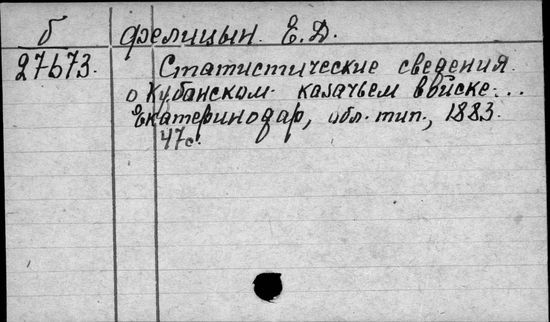 б Фелицын. Е.Д.
27673. Статистические сведения
о Кубанском казачьем войске...
Екатеринодар, обл. тип., 1883.
47с.